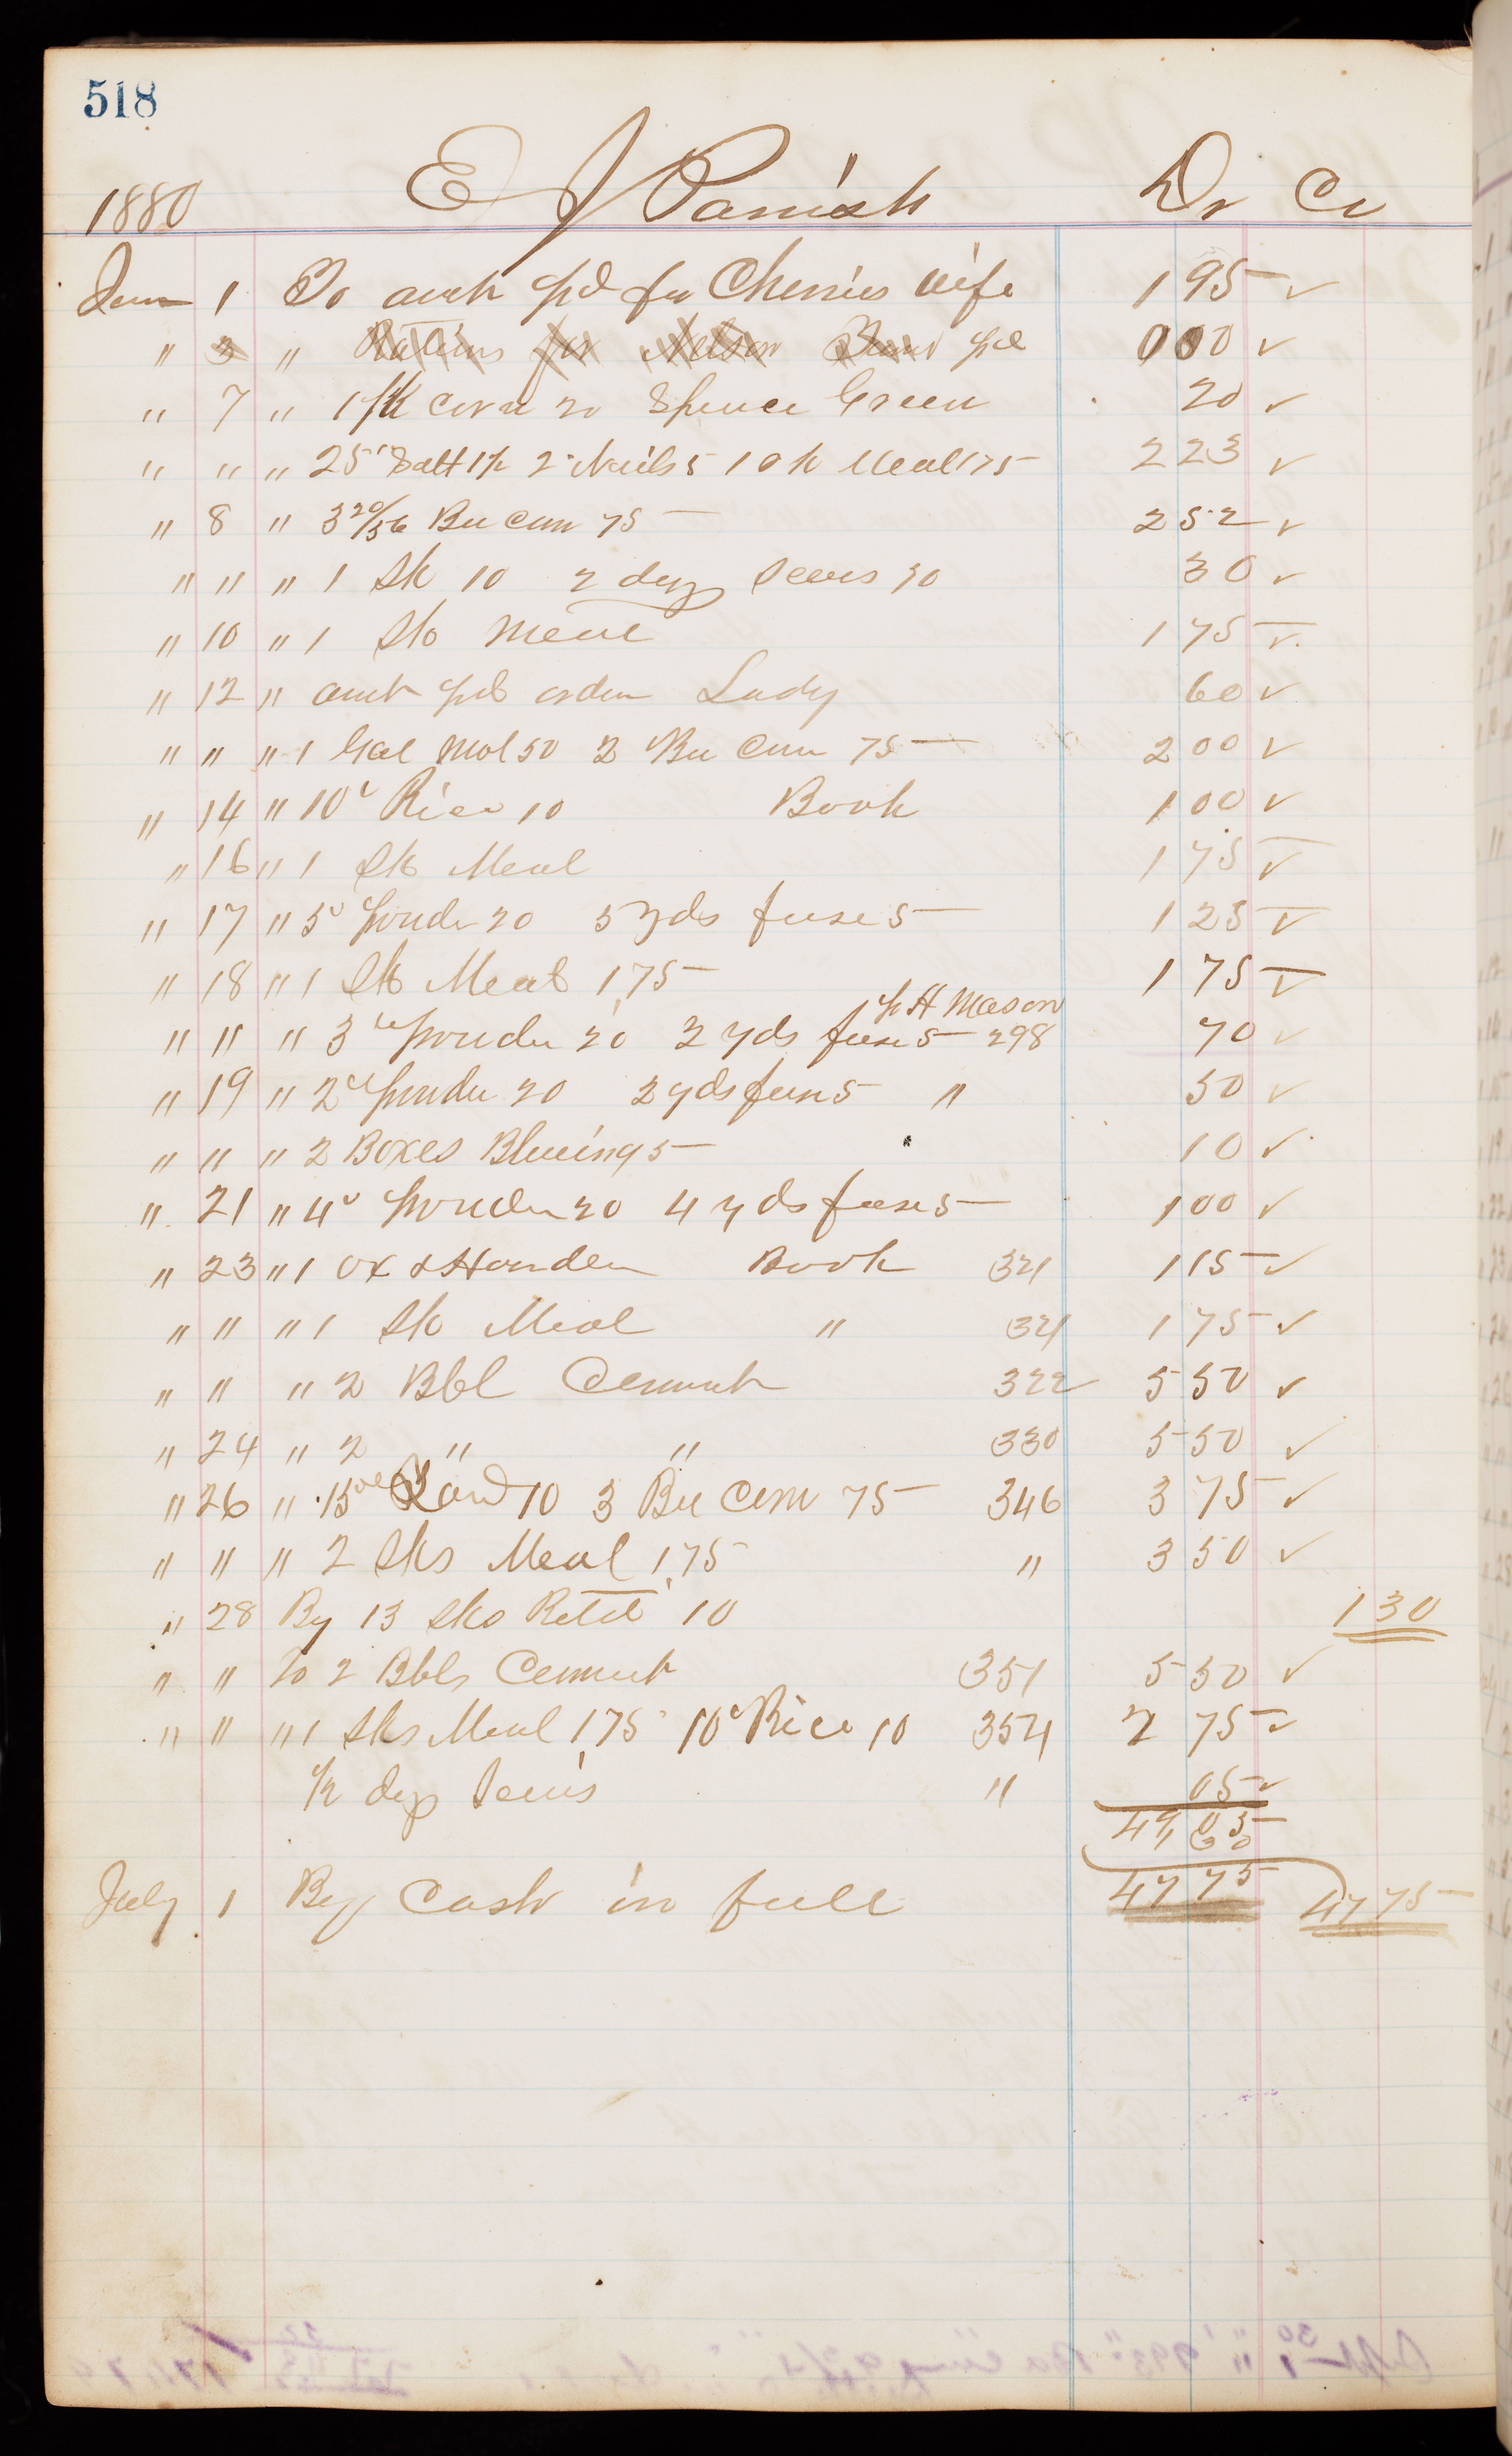 518
1880 E J Parrish Dr Cr
June 1 To amt pd for Cherries wife 1 95 ✓
" 3 " Rations for Nelson pd 0 00 ✓
" 7 " 1 pk corn 20 Spence Green 20 ✓
" " " 25 Salt 1½ 2 Nails 5 1 sk Meal 175 2 23 ✓
" 8 " 3 20/56 Bu Corn 75 2 52 ✓
" " " 1 Sk 10 2 doz 10 30 ✓
" 10 " 1 Sk Meal 1 75 ✓
" 12 " amt pd order Lady 60 ✓
" " " 1 Gal Mol 50 2 Bu Corn 75 2 00 ✓
" 14 " 10 Rice 10 Book 1 00 ✓
" 16 " 1 Sk Meal 1 75 ✓
" 17 " 5 Powder 20 5 yds fuse 5 1 25 ✓
" 18 " 1 Sk Meal 1.75 1 75 ✓
pr H Mason
" " " 3 Powder 20 2 yds fuse 5 298 70 ✓
" 19 " 2 Powder 20 2 yds fuse 5 " 50 ✓
" " " 2 Boxes Blueing 5 10 ✓
" 21 " 4 Powder 20 4 yds fuse 5 1 00 ✓
" 23 " 1 ax & Handle Book 321 1 15 ✓
" " " 1 Sk Meal " 321 1 75 ✓
" " " 2 Bbl Cement 322 5 50 ✓
" 24 " 2 " " 330 5 50 ✓
" 26 " 15 Lard 10 3 Bu Corn 75 346 3 75 ✓
" " " 2 Sks Meal 1.75 " 3 50 ✓
" 28 By 13 Sks Retd 10 1 30
" " To 2 Bbls Cement 351 5 50 ✓
" " " 1 Sks Meal 1.75 10 Rice 10 354 2 75 ✓
½ doz " 05 ✓
49 05
1 30
47 75
July 1 By Cash in full 47 75